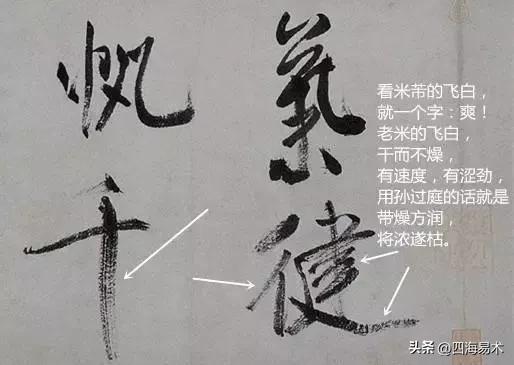 氣健
帆千
看米芾的飞白，
就一个字：爽！
老米的飞白，
干而不燥，
有速度，有涩劲，
用孙过庭的话就是
带燥方润，
将浓遂枯。
头条 @四海易术